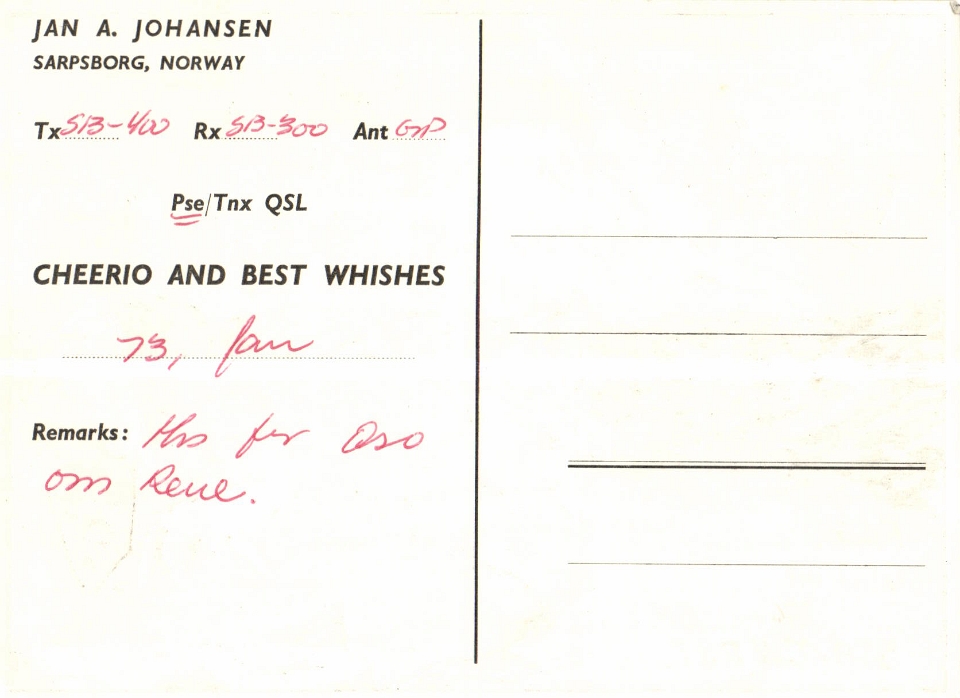 JAN A. JOHANSEN
SARPSBORG, NORWAY
Tx SB-400 Rx SB-300 Ant GP
Pse/Tnx QSL
CHEERIO AND BEST WHISHES
73, Jan
Remarks: for QSO
om Rene.